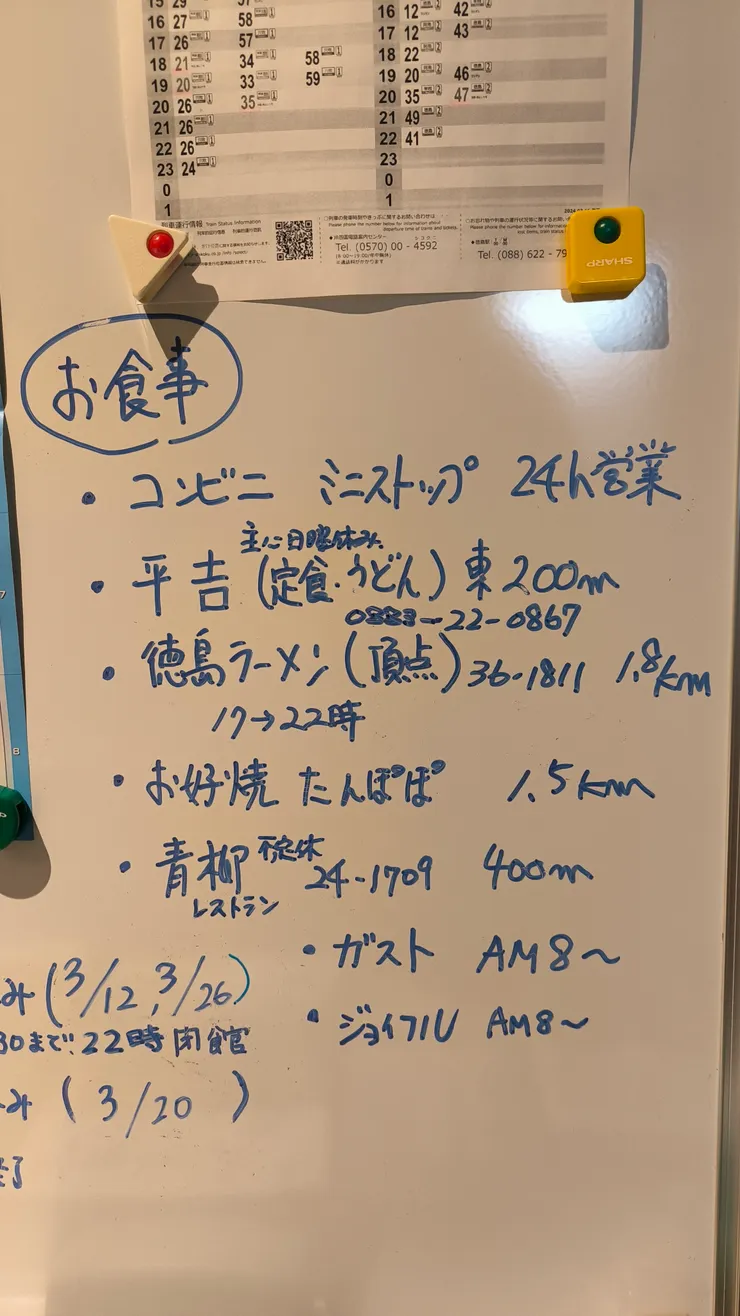 16 27 58
17 26 57
18 21 34 58
19 20 33 59
20 26 35
21 26
22 26
23 24
0
1
16 12 42
17 12 43
18 22
19 20 46
20 35 47
21 49
22 41
23
0
1
列車運行情報 Train Status Information
○列車の発車時刻やきっぷに関するお問い合わせは
Please phone the number below for information about departure time of trains and tickets.
Tel. (0570) 00 - 4592
Tel. (088) 622 - 79
SHARP
お食事
・コンビニ ミニストップ 24h営業
主に日曜休み
・平吉 (定食・うどん) 東200m
0883-22-0867
・徳島ラーメン (頂点) 36-1811 1.8km
17→22時
・お好焼 たんぽぽ 1.5km
・青柳 不定休 24-1709 400m
レストラン
・ガスト AM8~
・ジョイフル AM8~
み (3/12, 3/26)
30まで. 22時閉館
み ( 3/20 )